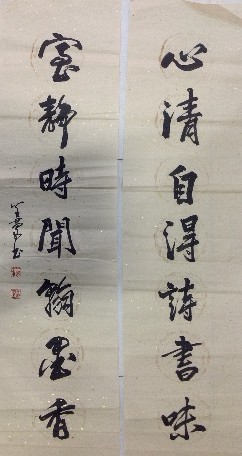 心清自得詩書味
室靜時聞翰墨香